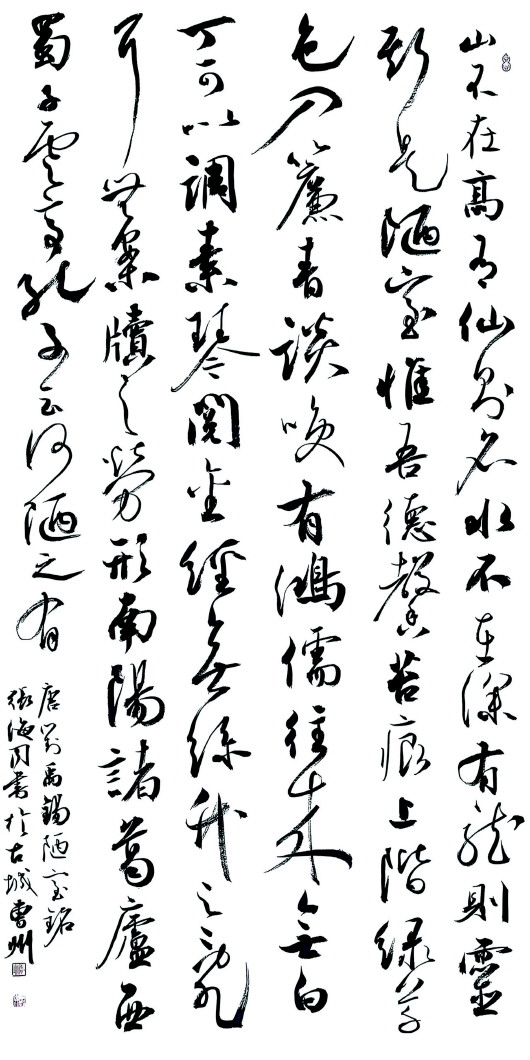 山不在高有仙則名水不在深有龍則靈
斯是陋室惟吾德馨苔痕上階綠草
色入簾青談咲有鴻儒往來無白
丁可以調素琴閱金經無絲竹之亂
耳無案牘之勞形南陽諸葛廬西
蜀子雲亭孔子云何陋之有
唐劉禹錫陋室銘
張海書於古城曹州